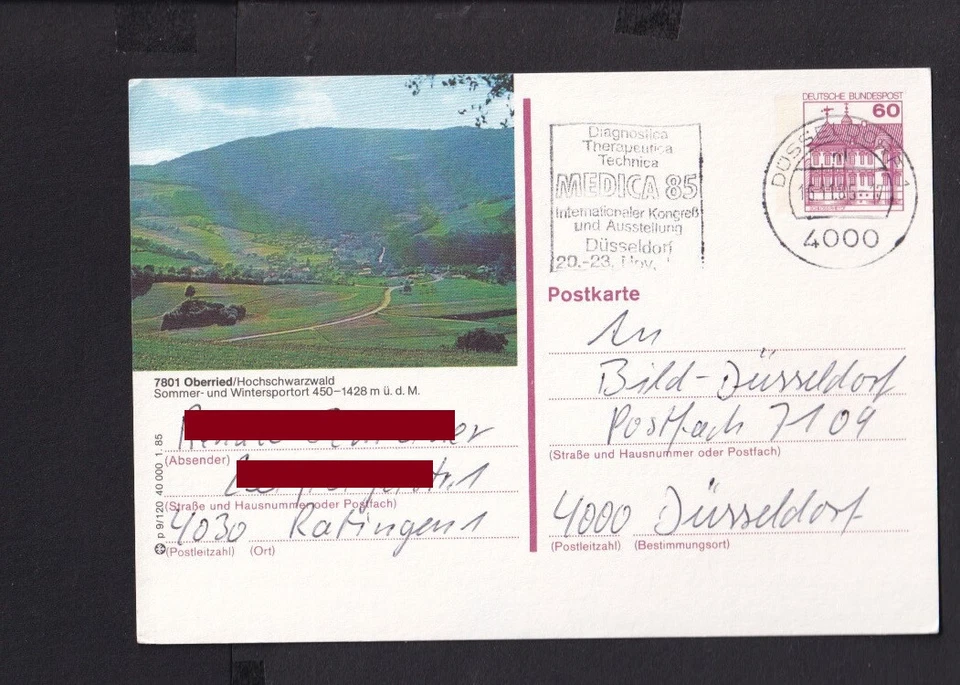 DEUTSCHE BUNDESPOST
60
Diagnostica
Therapeutica
Technica
MEDICA 85
Internationaler Kongreß
und Ausstellung
Düsseldorf
20.-23. Nov.
DÜSSELDORF 1
4000
Postkarte
An
Bild-Düsseldorf
Postfach 7109
(Straße und Hausnummer oder Postfach)
4000 Düsseldorf
(Postleitzahl) (Bestimmungsort)
7801 Oberried/Hochschwarzwald
Sommer- und Wintersportort 450–1428 m ü. d. M.
(Absender)
(Straße und Hausnummer oder Postfach)
4030 Ratingen 1
(Postleitzahl) (Ort)
p 9/120 40 000 1. 85